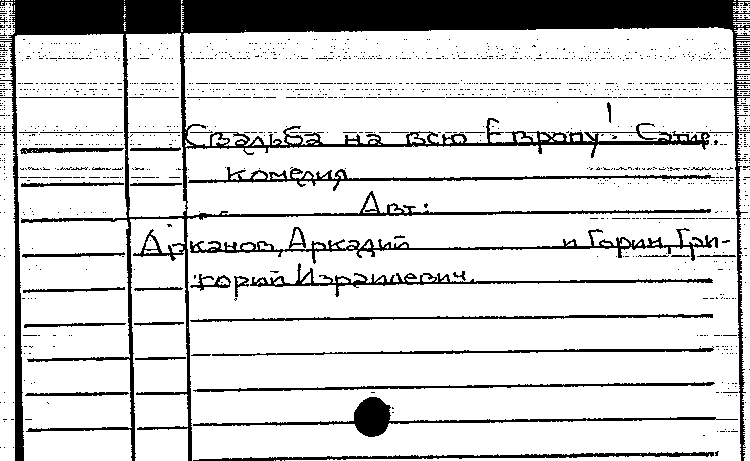 Свадьба на всю Европу! Сатир.
комедия
Авт:
Арканов, Аркадий и Горин, Гри-
горий Израилевич.